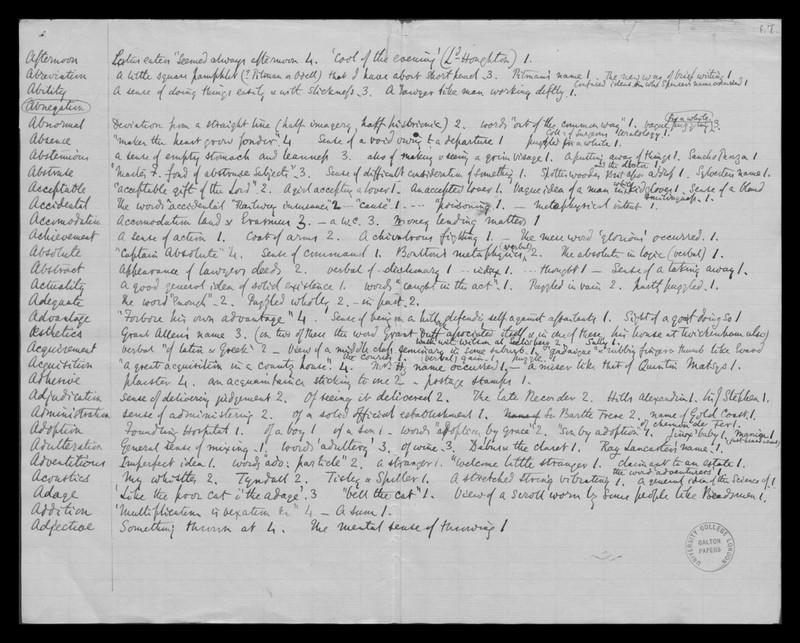 Afternoon Lotus eaters "Seemed always afternoon 4. 'Cool of the evening' (Ld Houghton) 1.
Abbreviation A little square pamphlet (? Pitman or Odell) that I have about short hand 3. Pitman's name 1. The new way of brief writing 1
Ability A sense of doing things easily & with slickness 3. A lawyer like man working deftly 1.
Abnegation
Abnormal Deviation from a straight line (half imagery, half histrionic) 2. words "out of the common way" 1. vague puzzling 3. for a while
Absence "makes the heart grow fonder" 4 Sense of a void owing to a departure 1 puzzled for a while 1. Coll: of Surgeons Teratology 1.
Abstemious a sense of empty stomach and leanness 3. also of making & seeing a grim visage 1. A putting away of things 1. Sancho Panza 1 and the doctor 1
Abstruse fond of abstruse subjects" 3. Sense of difficult consideration of something 1. Spottiswoode's Sylvester's name 1.
Acceptable "acceptable gift of the Lord" 2. A girl accepting a lover 1. An accepted lover 1. Vague idea of a man in kid gloves 1. Sense of a bland smilingness 1.
Accidental the words "accidental" "Railway insurance" 2 -- "cause" 1. --- "poisoning" 1. — metaphysical intent 1.
Accomodation Accomodation land & Erasmus 3. — a W.C. 3. Money lending matters 1
Achievement A sense of action 1. Coat of arms 2. A chivalrous fighting 1. — The mere word 'glorious' occurred. 1.
Absolute "Captain Absolute" 4. Sense of command 1. Boulton's metaphysics (verbal) 2. The absolute in logic (verbal) 1.
Abstract Appearance of lawyers deeds 2. verbal of - dictionary 1 -- idea 1. --- thought 1 — Sense of a taking away 1.
Actuality a good general idea of solid existence 1. words "caught in the act". 1. Puzzled in vain 2. partly puzzled 1.
Adequate The word "enough" 2. Puzzled wholly 2. — in part 2.
Advantage "Forbore his own advantage" 4. Sense of being on a hill & defending self against assailants 1. Sight of a goat doing so 1
Æsthetics Grant Allen's name 3. (on two of these the word Grant Duff associated itself & in one of these, his house at Twickenham also)
Acquirement verbal "of latin & Greek" 2 — View of a middle class seminary in some suburb 1.
Acquisition "a great acquisition in a county house". 4. name occurred 1. — a miser like that of Quentin Matsys 1.
Adhesive plaister 4. an acquaintance sticking to one 2 - postage stamps 1.
Adjudication sense of delivering judgement 2. Of seeing it delivered 2. The late Recorder 2. Sir J Stephen 1.
Administration sense of administering 2. of a solid official establishment 1. Sir Bartle Frere 2. name of Gold Coast 1.
Adoption Foundling Hospital 1. of a boy 1 of a son 1 - words "adoption, by grace" 2. 'Son by adoption' 1.
Adulteration General sense of mixing 1. words 'adultery' 3. of wine 3. Ray Lancaster's name 1.
Adventitious Imperfect idea 1. words "adv: particle" 2. a stranger 1. "Welcome little stranger" 1. claimant to an estate 1. the word "adventurers" 1
Acoustics My whistles 2. Tyndall 2. Tisley & Spiller 1. A stretched string vibrating 1. a general idea of the Science of 1
Adage 'Like the poor cat i' the adage' 3 "bell the cat" 1. View of a scroll worn by some people like 1.
Addition 'Multiplication is vexation &c" 4 — A sum 1.
Adjective Something thrown at 4. The mental sense of throwing 1
UNIVERSITY COLLEGE LONDON
GALTON PAPERS